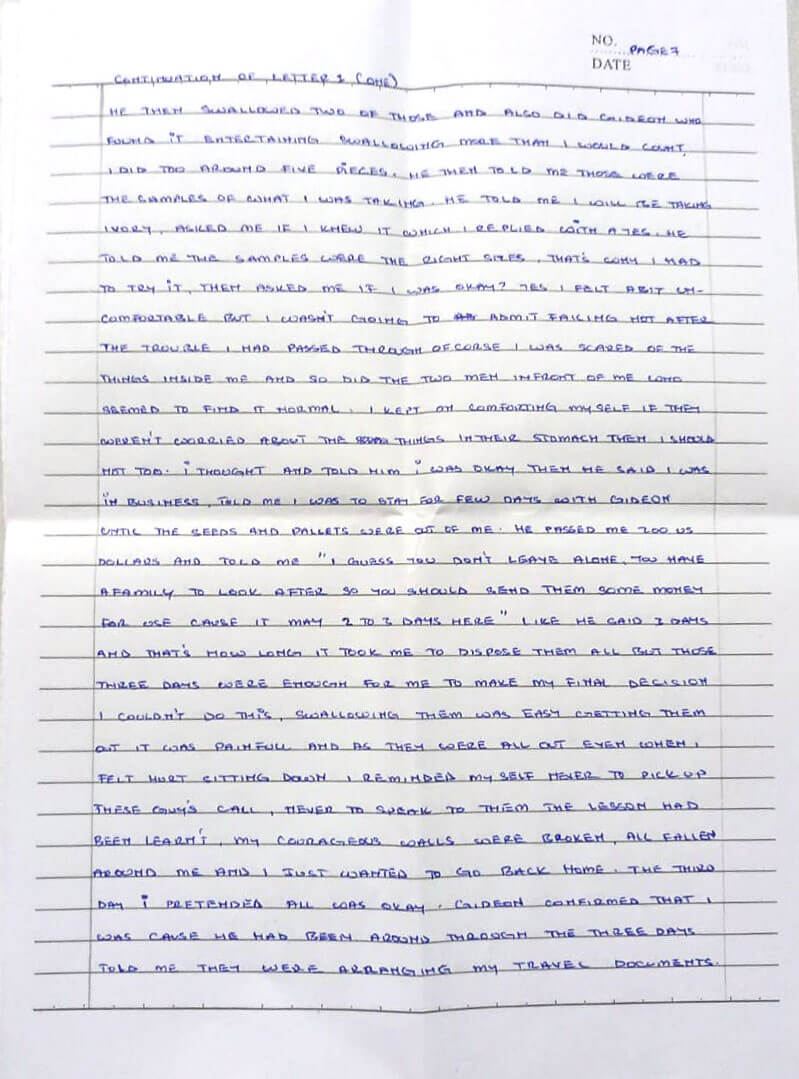 NO. PAGE 7
DATE
CONTINUATION OF LETTER 1 (ONE)
HE THEN SWALLOWED TWO OF THOSE AND ALSO DID GIDEON WHO
FOUND IT ENTERTAINING SWALLOWING MORE THAN I WOULD COUNT,
I DID TOO AROUND FIVE PIECES. HE THEN TOLD ME THOSE WERE
THE SAMPLES OF WHAT I WAS TAKING. HE TOLD ME I WILL BE TAKING
IVORY, ASKED ME IF I KNEW IT WHICH I REPLIED WITH A YES. HE
TOLD ME THE SAMPLES WERE THE RIGHT SIZES, THAT'S WHY I HAD
TO TRY IT, THEN ASKED ME IF I WAS OKAY? YES I FELT ABIT UN-
COMFORTABLE BUT I WASN'T GOING TO ADMIT FAILING NOT AFTER
THE TROUBLE I HAD PASSED THROUGH OFCORSE I WAS SCARED OF THE
THINGS INSIDE ME AND SO DID THE TWO MEN INFRONT OF ME WHO
SEEMED TO FIND IT NORMAL. I KEPT ON COMFORTING MYSELF IF THEY
WEREN'T WORRIED ABOUT THE THINGS IN THEIR STOMACH THEN I SHOULD
NOT TOO. I THOUGHT AND TOLD HIM I WAS OKAY THEN HE SAID I WAS
IN BUSINESS, TOLD ME I WAS TO STAY FOR FEW DAYS WITH GIDEON
UNTIL THE SEEDS AND PALLETS WERE OUT OF ME. HE PASSED ME 200 US
DOLLARS AND TOLD ME "I GUESS YOU DON'T LEAVE ALONE, YOU HAVE
A FAMILY TO LOOK AFTER SO YOU SHOULD SEND THEM SOME MONEY
FOR USE CAUSE IT MAY 2 TO 3 DAYS HERE" LIKE HE SAID 3 DAYS
AND THAT'S HOW LONG IT TOOK ME TO DISPOSE THEM ALL BUT THOSE
THREE DAYS WERE ENOUGH FOR ME TO MAKE MY FINAL DECISION
I COULDN'T DO THIS, SWALLOWING THEM WAS EASY GETTING THEM
OUT IT WAS PAINFULL AND AS THEY WERE ALL OUT EVEN WHEN I
FELT HURT SITTING DOWN I REMINDED MY SELF NEVER TO PICK UP
THESE GUY'S CALL, NEVER TO SPEAK TO THEM THE LESSON HAD
BEEN LEARN'T, MY COURAGEOUS WALLS WERE BROKEN, ALL FALLEN
AROUND ME AND I JUST WANTED TO GO BACK HOME. THE THIRD
DAY I PRETENDED ALL WAS OKAY. GIDEON CONFIRMED THAT I
WAS CAUSE HE HAD BEEN AROUND THROUGH THE THREE DAYS
TOLD ME THEY WERE ARRANGING MY TRAVEL DOCUMENTS.